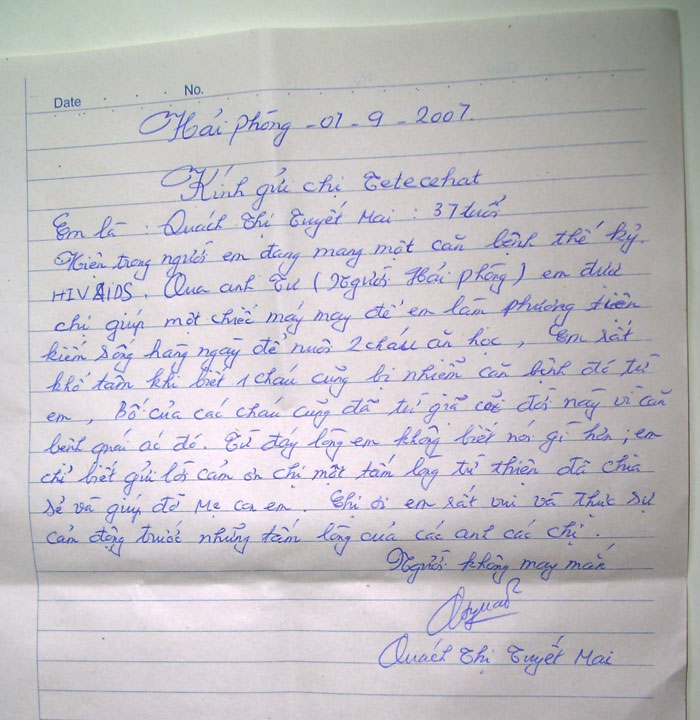 Date No.
Hải phòng - 01 - 9 - 2007.
Kính gửi chị Tetecehat
Em là : Quách Thị Tuyết Mai : 37 tuổi
Hiện trong người em đang mang một căn bệnh thế kỷ.
HIV AIDS. Qua anh Tư (Người Hải phòng) em được
chị giúp một chiếc máy may để em làm phương tiện
kiếm sống hàng ngày để nuôi 2 cháu ăn học, Em rất
khổ tâm khi biết 1 cháu cũng bị nhiễm căn bệnh đó từ
em, Bố của các cháu cũng đã từ giã cõi đời này vì căn
bệnh quái ác đó. Từ đáy lòng em không biết nói gì hơn; em
chỉ biết gửi lời cảm ơn chị một tấm lòng từ thiện đã chia
sẻ và giúp đỡ Mẹ con em. Chị ơi em rất vui và thực sự
cảm động trước những tấm lòng của các anh các chị.
Người không may mắn
Quách Thị Tuyết Mai